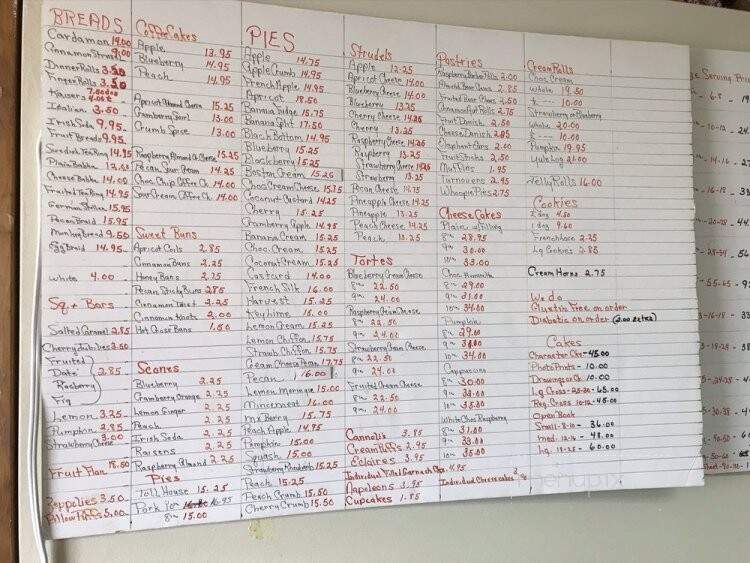 BREADS
Cardamon 14.00
Cinnamon Strudel 9.00
Dinner Rolls 3.50
Finger Rolls 3.50
Kaisers
Italian 3.50
Irish Soda 9.95
Fruit Breads 9.95
Swedish Tea Ring 14.95
Plain Babka
Cheese Babka 14.00
Fruited Tea Ring 14.95
German Stollen 15.95
Pecan Braid 15.95
Monkey bread 9.50
Egg Braid 14.95
White 4.00
Sq + Bars
Salted Caramel 2.85
Cherry Jubilees 2.50
Fruited
Date 2.85
Raspberry
Fig
Lemon 3.25
Pumpkin 2.95
Strawberry Cheese 3.00
Fruit Flan 18.50
Zeppolies 3.50
5.00
Coffee Cakes
Apple 13.95
Blueberry 14.95
Peach 14.95
Apricot Almond Cheese 15.25
Cranberry Swirl 13.00
Crumb Spice 13.00
Raspberry Almond Ch. Cheese 15.25
Pecan Sour Cream 14.25
Choc Chip Coffee Ch. 14.00
Sour Cream Coffee Ch. 14.00
Sweet Buns
Apricot Coils 2.85
Cinnamon Buns 2.25
Honey Buns 2.75
Pecan Sticky Buns 2.85
Cinnamon Twist 2.25
Cinnamon Knots 2.00
Hot Cross Buns 1.50
Scones
Blueberry 2.25
Cranberry Orange 2.25
Lemon Ginger 2.25
Peach 2.25
Irish Soda 2.25
Raisens 2.25
Raspberry Almond 2.25
Pies
Toll House 15.25
Pork 16.95
8in 15.00
PIES
Apple 14.75
Apple Crumb 14.95
French Apple 14.95
Apricot 18.50
Banana Fudge 15.75
Banana Split 17.50
Black Bottom 14.95
Blueberry 15.25
Blackberry 15.25
Boston Cream 15.25
Choc Cream Cheese 15.75
Coconut Custard 14.25
Cherry 15.25
Cranberry Apple 14.95
Banana Cream 15.25
Choc. Cream 15.25
Coconut Cream 15.25
Custard 14.00
French Silk 16.00
Harvest 15.25
Key lime 15.00
Lemon Cream 15.25
Lemon Chiffon 15.75
Straub Chiffon 15.75
Cream Cheese Pecan 17.75
Pecan 16.00
Lemon Meringue 15.00
Mincemeat 16.00
Mx Berry 15.75
Peach Apple 14.95
Pumpkin 15.00
Squash 15.00
Strawberry Rhubarb 15.25
Peach 15.25
Peach Crumb 15.50
Cherry Crumb 15.50
Strudels
Apple 12.25
Apricot Cheese 14.00
Blueberry Cheese 14.00
Blueberry 13.25
Cherry Cheese 14.25
Cherry 13.25
Raspberry Cheese 14.25
Raspberry 13.25
Strawberry Cheese 14.25
Strawberry 13.25
Pecan Cheese 14.75
Pineapple Cheese 14.25
Pineapple 13.25
Peach Cheese 14.25
Peach 13.25
Tortes
Blueberry Cream Cheese
8in 22.50
9in 24.00
Raspberry Cream Cheese
8in 22.50
9in 24.00
Strawberry Cream Cheese
8in 22.50
9in 24.00
Fruited Cream Cheese
8in 22.50
9in 24.00
Cannolis 3.85
Cream Puffs 2.95
Eclaires 3.95
Individual 4.95
Napoleons 3.95
Cupcakes 1.85
Pastries
2.00
Almond Bear Claws 2.85
Fruited Bear Claws 2.50
Cinnamon Nut Rolls 2.75
Fruit Danish 2.50
Cheese Danish 2.85
Elephant Ears 2.00
Fruit Sticks 2.50
Muffins 1.95
Turnovers 2.95
Whoopie Pies 2.75
Cheese Cakes
Plain w/Filling
8in 28.95
9in 30.00
10in 33.00
Choc
8in 29.00
9in 31.00
10in 34.00
Pumpkin
8in 29.00
9in 31.00
10in 34.00
Cappuccino
8in 30.00
9in 33.00
10in 35.00
White Choc Raspberry
8in 31.00
9in 33.00
10in 35.00
Individual Cheesecakes
Cream Rolls
Choc Cream
whole 19.50
½ 10.00
Strawberry or Blueberry
whole 20.00
½ 10.00
Pumpkin 19.95
Yule Log 21.00
Jelly Rolls 16.00
Cookies
½ dog 4.80
1 dog 9.60
French lace 2.35
Lg Cookies 2.85
Cream Horns 2.75
We do
Gluetin Free on order
Diabetic on order (2.00 extra)
Cakes
Character Cke - 45.00
Photo Prints - 10.00
Drawings or Ck 10.00
Lg. Cross - 25-30 - 65.00
Reg. Cross - 10-12 - 45.00
Open Book
Small - 8-10 - 36.00
Med. 12-16 - 48.00
Lg. 18-25 - 60.00
menupix